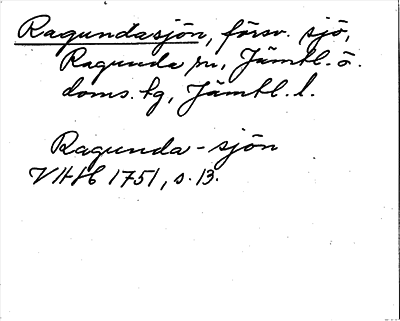 Ragundasjön, försv. sjö,
Ragunda sn, Jämtl. ö.
doms. tg, Jämtl. l.
Ragunda-sjön
VHAH 1751, s. 13.